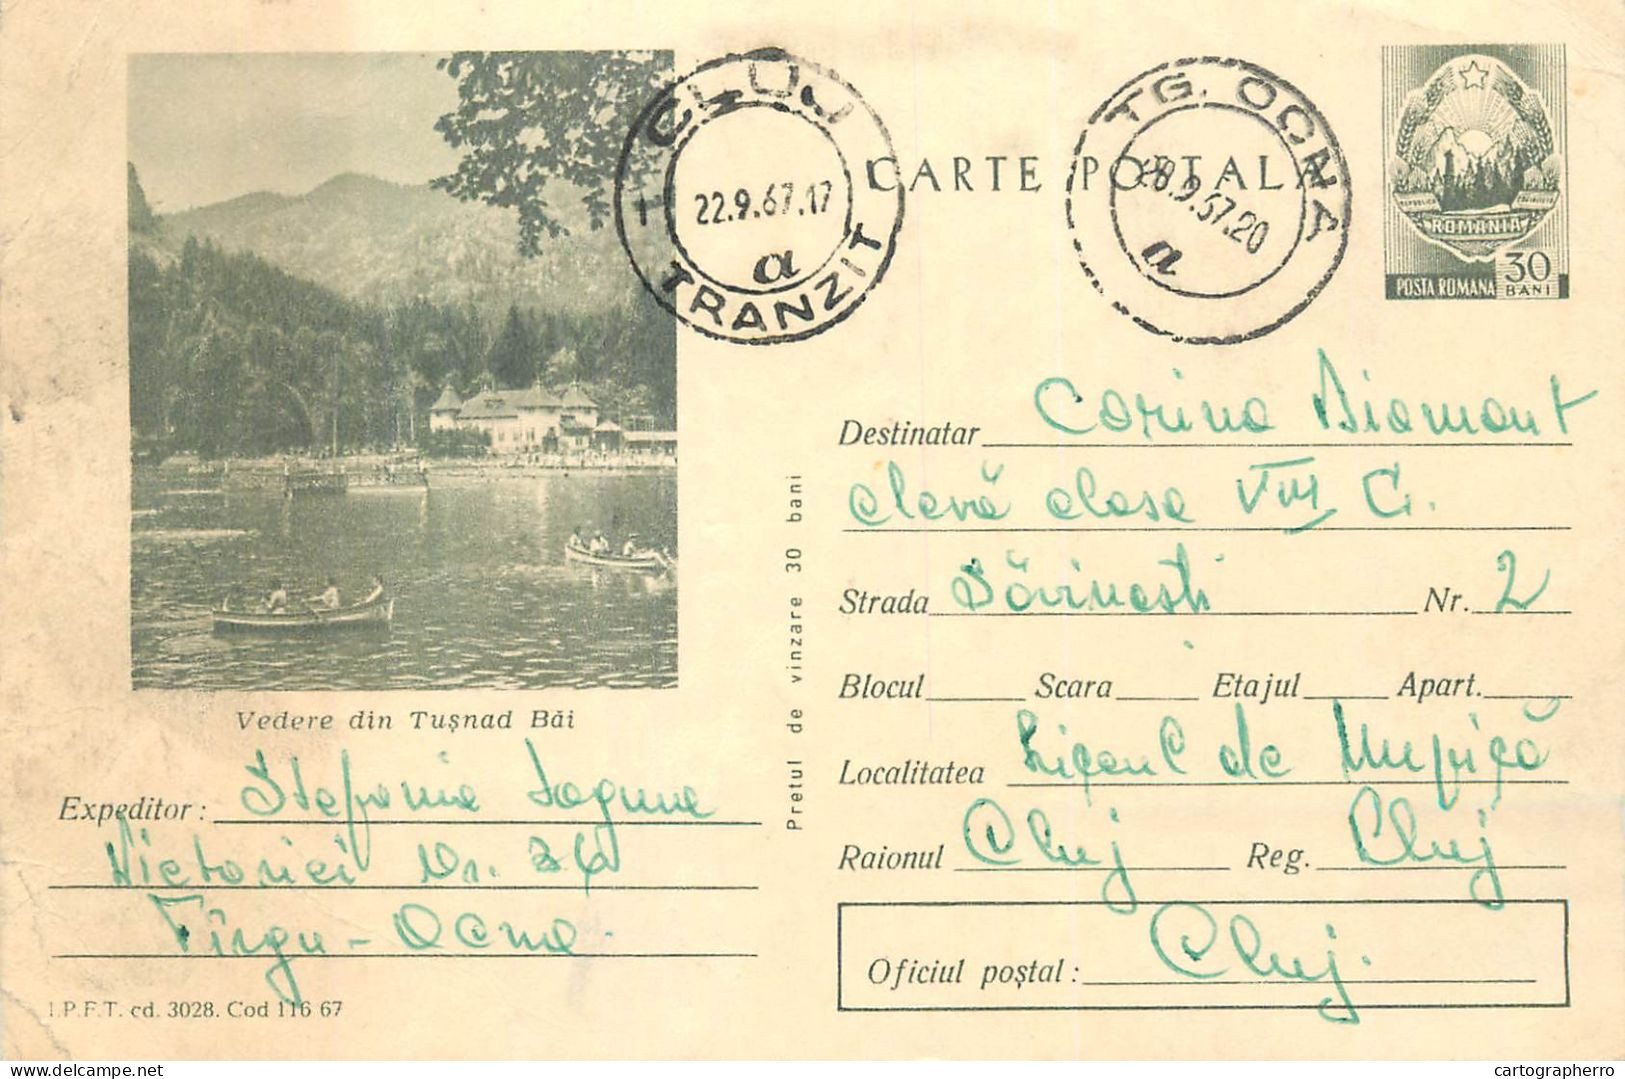 CLUJ
TRANZIT
22.9.67.17
a
CARTE POȘTALĂ
TG. OCNA
9.67.20
a
ROMANIA
POSTA ROMANA
30
BANI
Destinatar Corina Diamant
elevă clasa VIII C.
Strada Săvinești Nr. 2
Blocul Scara Etajul Apart.
Localitatea Liceul de Muzică
Raionul Cluj Reg. Cluj
Oficiul poștal: Cluj.
Pretul de vinzare 30 bani
Vedere din Tușnad Băi
Expeditor: Stefania
Victoriei Nr. 36
Tîrgu-Ocna.
I.P.F.T. cd. 3028. Cod 116 67
Delcampe.net
cartographerro